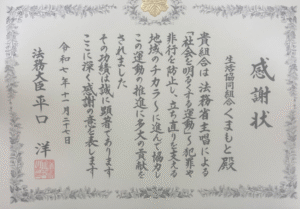 感謝状
生活協同組合くまもと殿
貴組合は法務省主唱による
「社会を明るくする運動」～犯罪や
非行を防止し、立ち直りを支える
地域のチカラ～に進んで協力し
この運動の推進に多大の貢献を
されました
その功績は誠に顕著であります
ここに深く感謝の意を表します
令和七年十一月二十七日
法務大臣 平口 洋